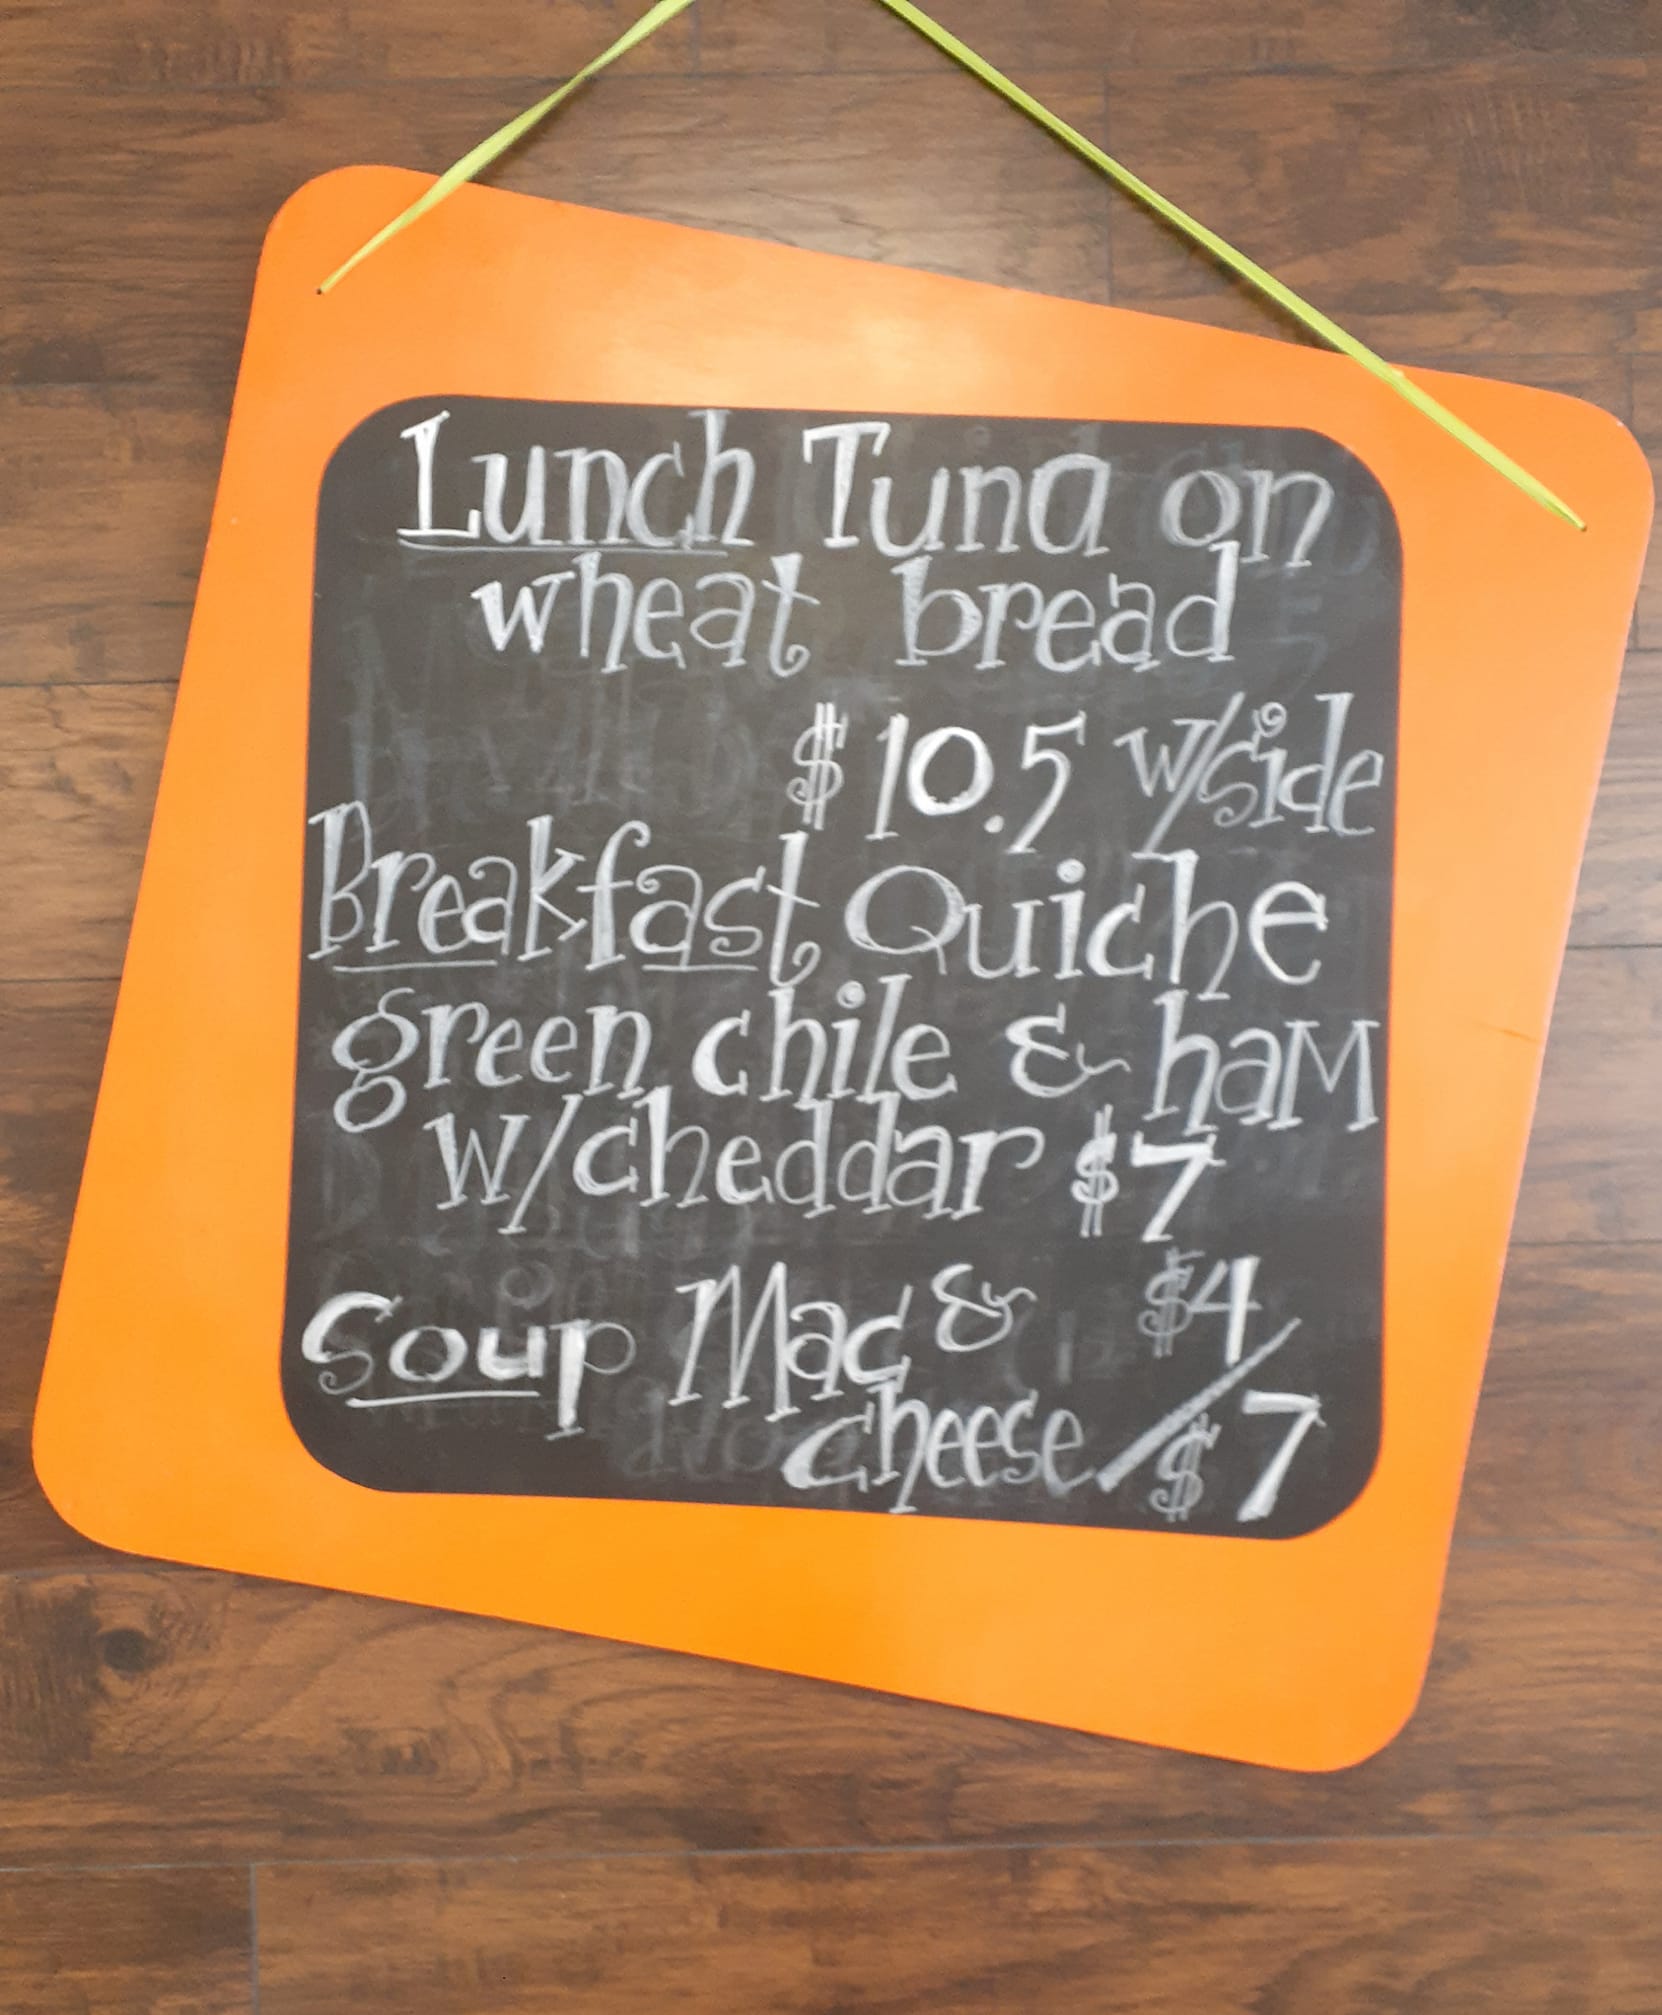 Lunch Tuna on
wheat bread
$10.5 w/side
Breakfast Quiche
green chile & haM
w/cheddar $7
Soup Mac & $4/
cheese $7